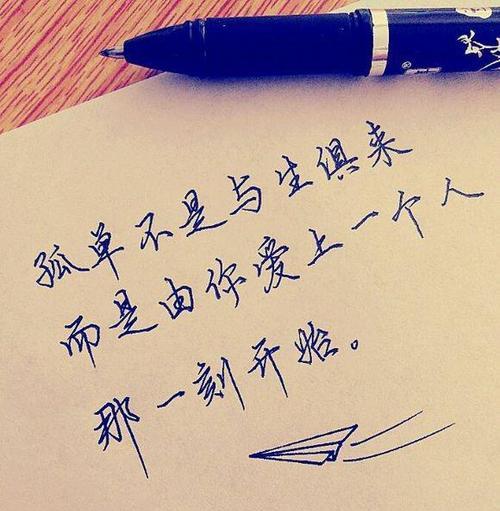 孤单不是与生俱来
而是由你爱上一个人
那一刻开始。